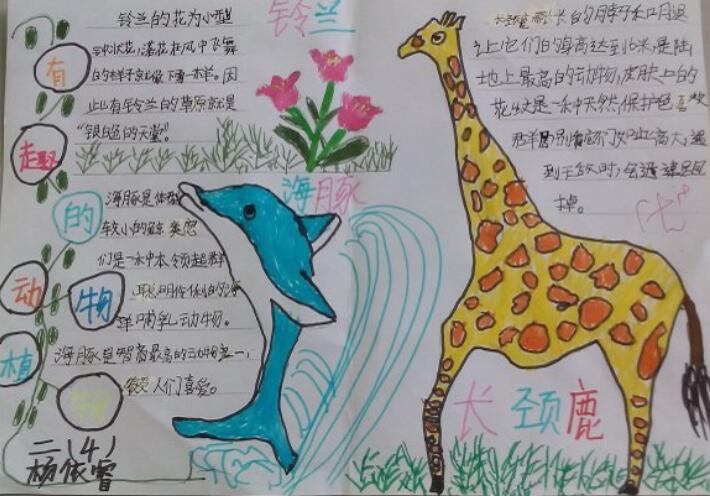 铃兰
铃兰的花为小型
钟状花,落花在风中飞舞
的样子就像下雪一样。因
此有铃兰的草原就是
“银白色的天堂”。
有趣的动植物
海豚
海豚是体型
较小的鲸类,它
们是一种本领超群
聪明伶俐的海
洋哺乳动物。
海豚是智商最高的动物之一,
人们喜爱。
二(4)
杨依睿
长颈鹿
长的脖子和腿
让它们的身高达到六米,是陆
地上最高的动物,皮肤上的
花纹是一种天然保护色
到干敌时,会迅速
掉。